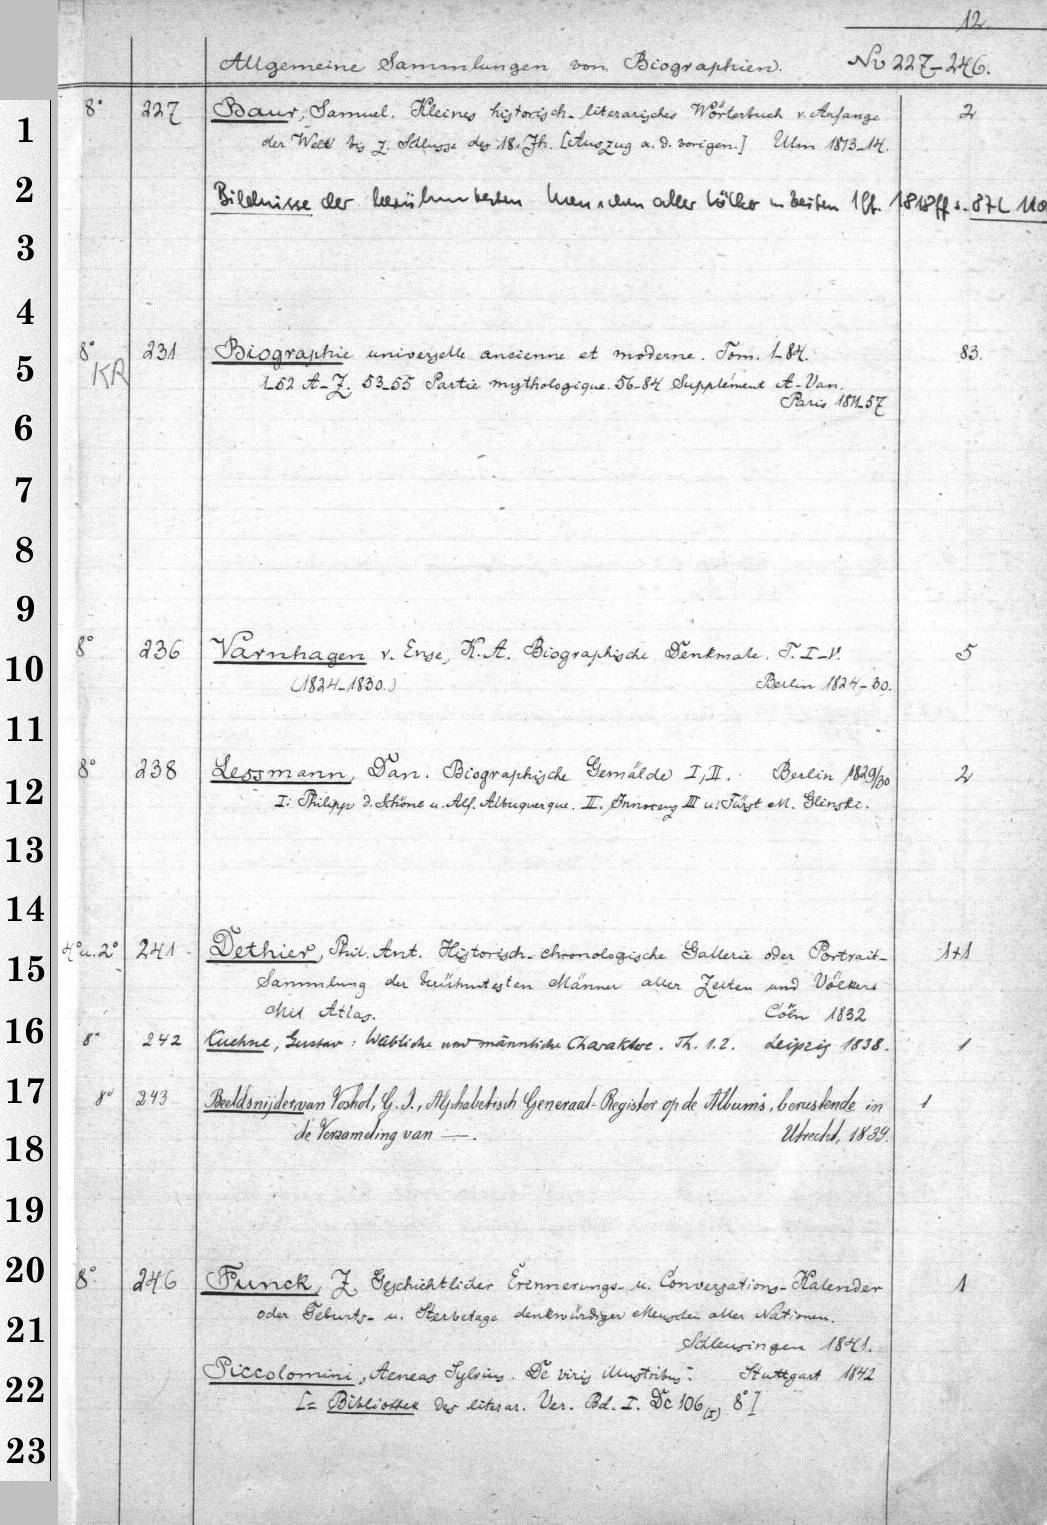 12.
Allgemeine Sammlungen von Biographien. No 227-246.
1 8° 227 Baur, Samuel. Kleines historisch-literarisches Wörterbuch v. Anfange 2
der Welt bis z. Schlusse des 18. Jh. [Auszug a. d. vorigen.] Ulm 1813-14.
2 Bildnisse der berühmtesten Menschen aller Völker u. Zeiten 1818ff s.
3
4
5 8° KR 231 Biographie universelle ancienne et moderne. Tom. 1-84. 83.
1-52 A-Z. 53-55 Partie mythologique. 56-84 Supplément A-Van.
Paris 1811-57
6
7
8
9
10 8° 236 Varnhagen v. Ense, K. A. Biographische Denkmale. T. I-V. 5
(1824-1830.) Berlin 1824-30.
11
12 8° 238 Lessmann, Dan. Biographische Gemälde I, II. Berlin 1829/30 2
I: Philipp d. Schöne u. Alf. Albuquerque. II. Innocenz III u. Fürst M. Glinski.
13
14
15 4° u. 2° 241 Dethier, Phil. Ant. Historisch-chronologische Gallerie oder Portrait- 1+1
Sammlung der berühmtesten Männer aller Zeiten und Völker
Mit Atlas. Cöln 1832
16 8° 242 Kuehne, Gustav: Weibliche und männliche Charaktere. Th. 1. 2. Leipzig 1838. 1
17 8° 243 Beeldsnijder van Voshol, G. J., Alphabetisch Generaal-Register op de Albums, berustende in 1
18 de Verzameling van —. Utrecht, 1839.
19
20 8° 246 Funck, Z. Geschichtlicher Erinnerungs- u. Conversations-Kalender 1
21 oder Geburts- u. Sterbetage denkwürdiger Menschen aller Nationen.
Schleusingen 1841.
22 Piccolomini, Aeneas Sylvius. De viris illustribus. Stuttgart 1842
[= Bibliothek des literar. Ver. Bd. I. Dc 106 (I) 8°]
23